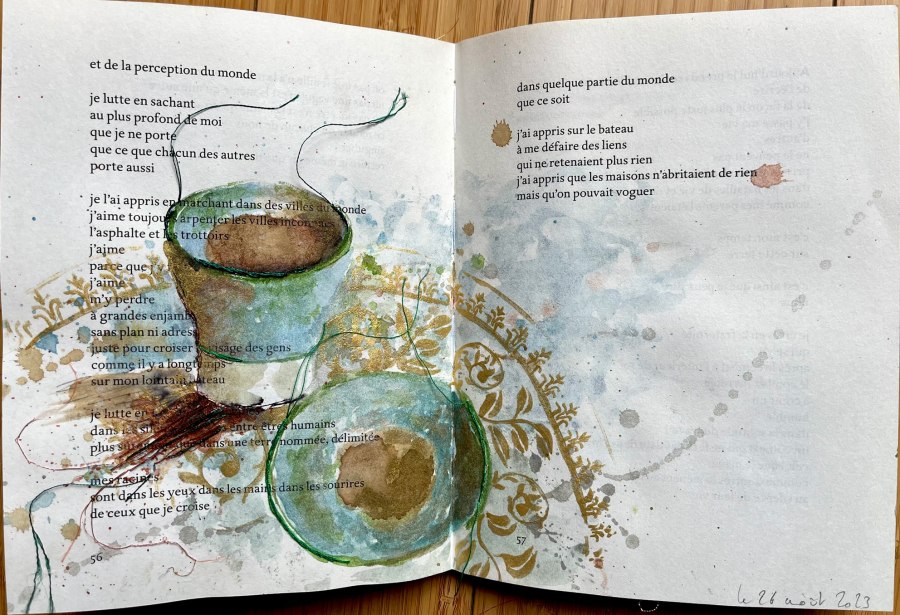 et de la perception du monde
je lutte en sachant
au plus profond de moi
que je ne porte
que ce que chacun des autres
porte aussi
je l'ai appris en marchant dans des villes du monde
j'aime toujours arpenter les villes inconnues
l'asphalte et les trottoirs
j'aime
parce que j'y
j'aime
m'y perdre
à grandes enjamb
sans plan ni adresse
juste pour croiser visage des gens
comme il y a longtemps
sur mon lointain bateau
je lutte en
dans les entre êtres humains
plus dans une terre nommée, délimitée
mes racines
sont dans les yeux dans les mains dans les sourires
de ceux que je croise
56
dans quelque partie du monde
que ce soit
j'ai appris sur le bateau
à me défaire des liens
qui ne retenaient plus rien
j'ai appris que les maisons n'abritaient de rien
mais qu'on pouvait voguer
57
le 26 août 2023